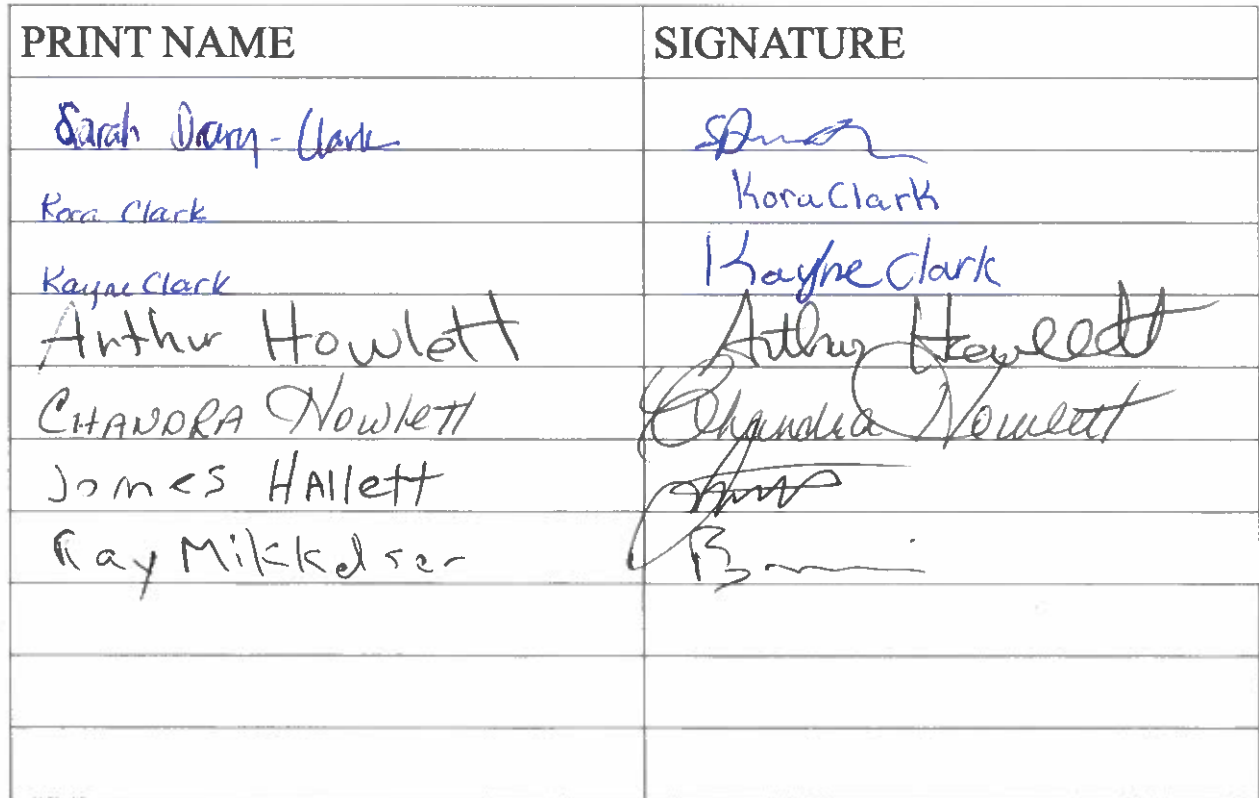 PRINT NAME SIGNATURE
Sarah Drary-Clark
Kora Clark Kora Clark
Kayne Clark Kayne Clark
Arthur Howlett Arthur Howlett
CHANDRA Howlett Chandra Howlett
James HAllett
Ray Mikkelsen